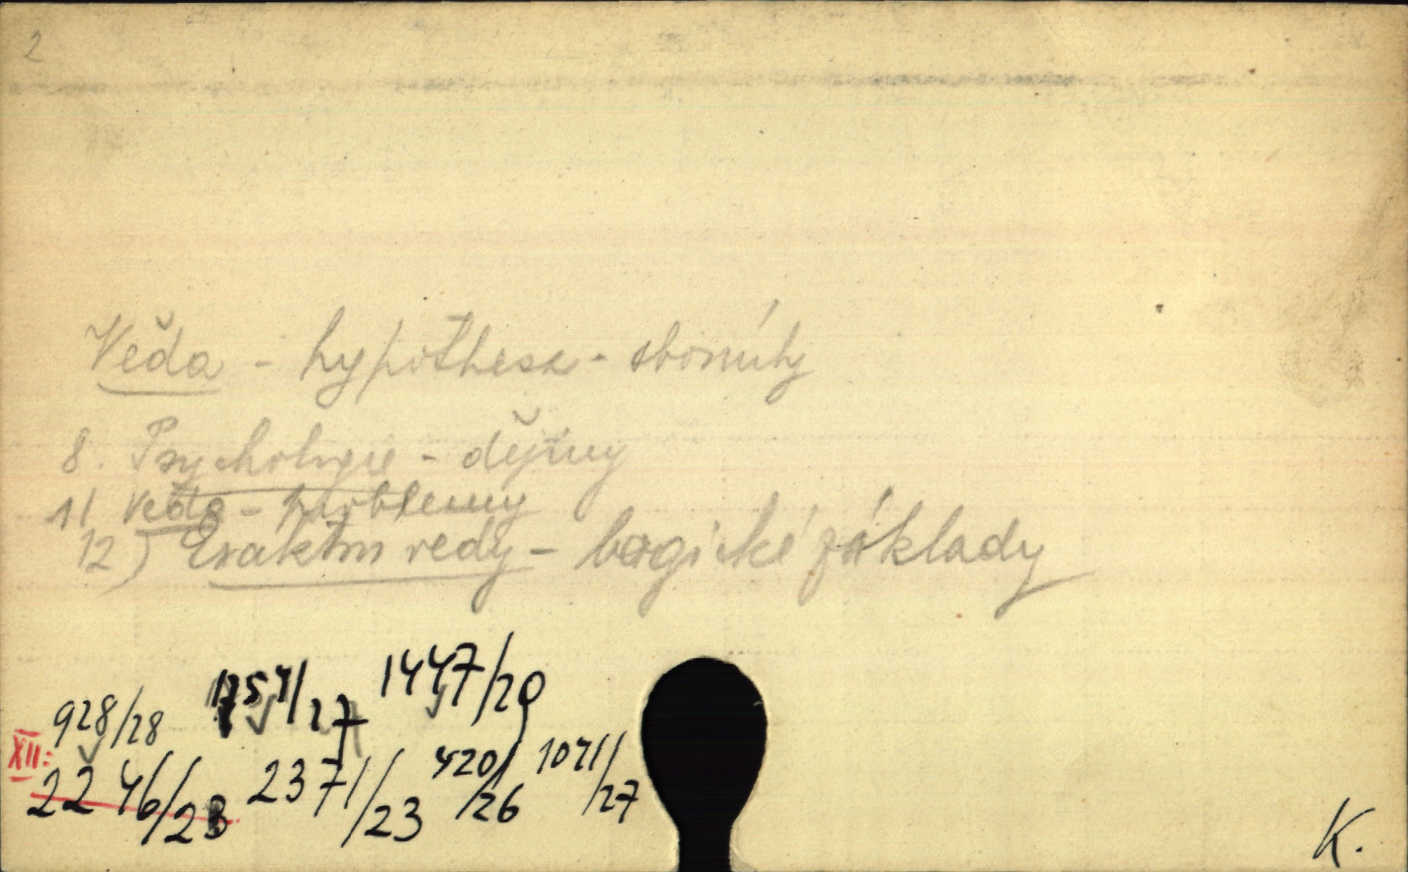 2
Věda - hypothesa - sborníky
8. Psychologie - dějiny
11 Věda - problemy
12) Exaktní vědy - logické základy
928/28 1257/27 1447/29
XII:
2246/23 2371/23 420/26 1071/27
K.